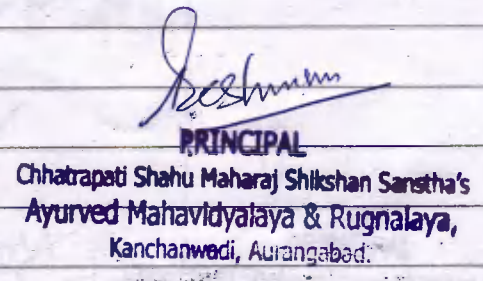 PRINCIPAL
Chhatrapati Shahu Maharaj Shikshan Sanstha's
Ayurved Mahavidyalaya & Rugnalaya,
Kanchanwadi, Aurangabad.